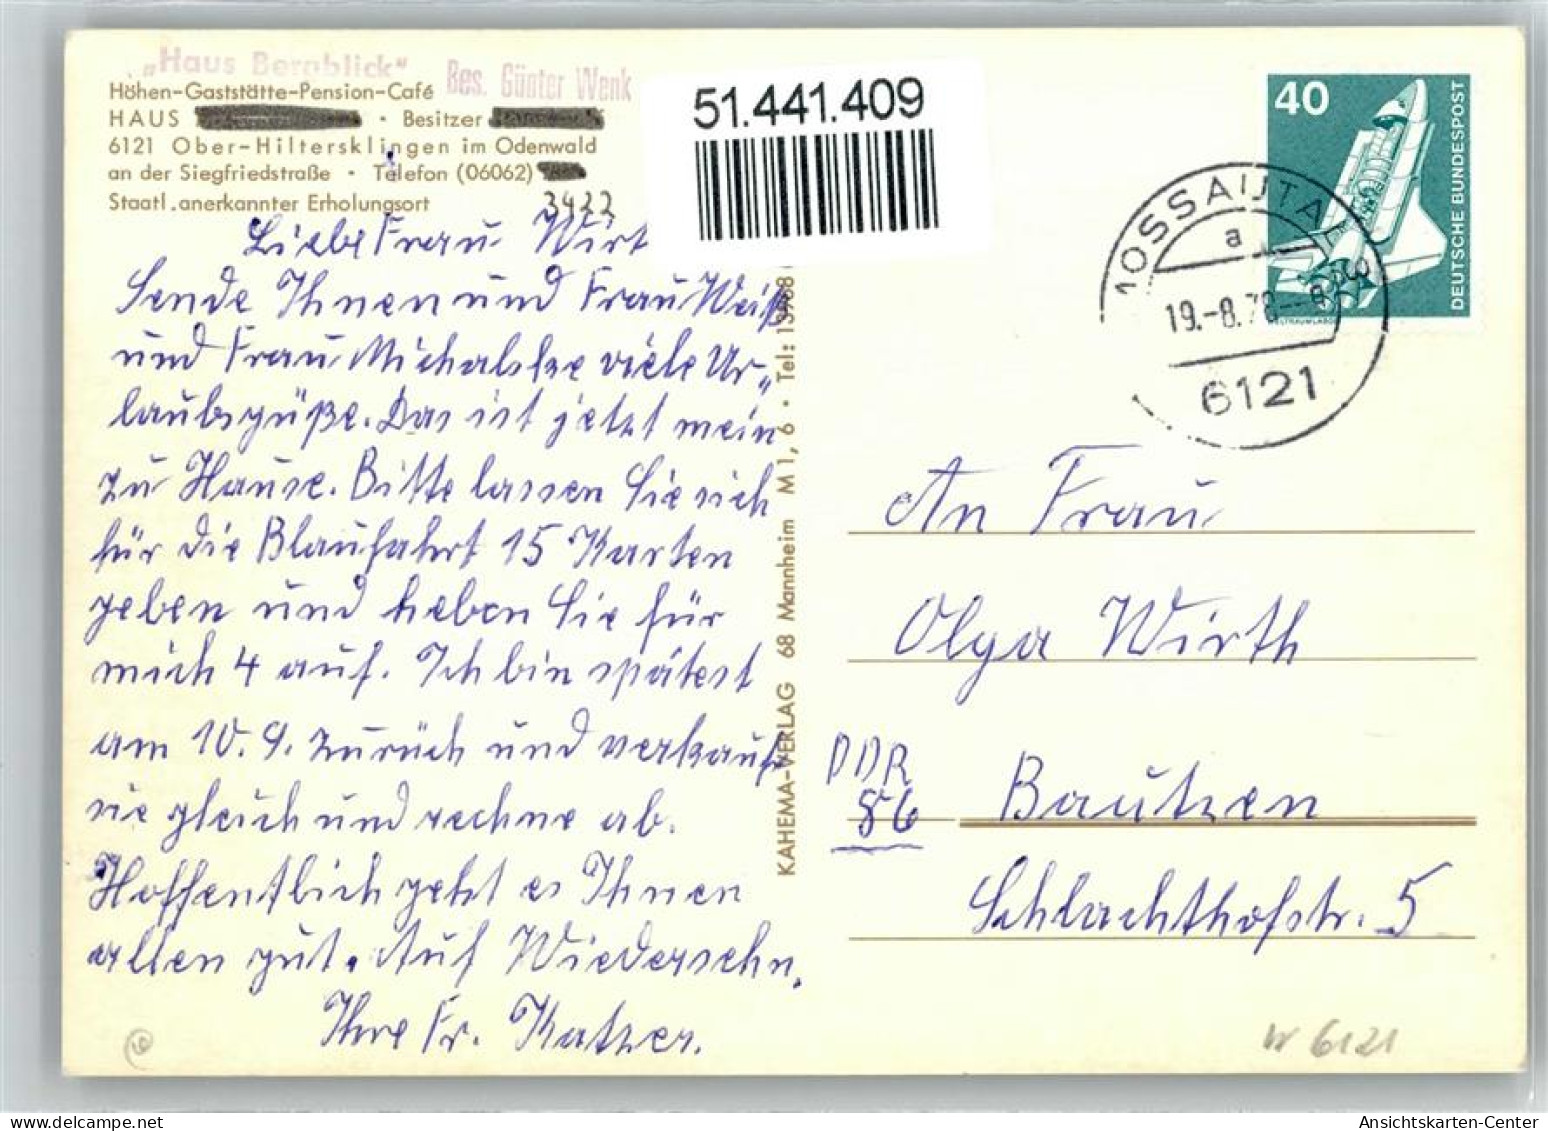 „Haus Bergblick“ Bes. Günter Wenk
Höhen-Gaststätte-Pension-Café
HAUS · Besitzer
6121 Ober-Hiltersklingen im Odenwald
an der Siegfriedstraße · Telefon (06062)
Staatl. anerkannter Erholungsort 3422
51.441.409
Liebe Frau Wirt
Sende Ihnen und Frau Weiß
und Frau Michalske viele Ur„
laubsgüße. Das ist jetzt mein
zu Hause. Bitte lassen Sie sich
für die Blaufahrt 15 Karten
geben und heben Sie für
mich 4 auf. Ich bin spätest
am 10. 9. zurück und verkauf
sie gleich und rechne ab.
Hoffentlich geht es Ihnen
allen gut. Auf Wiedersehn.
Ihre Fr. Katzer.
KAHEMA-VERLAG 68 Mannheim M 1, 6 · Tel:
40
DEUTSCHE BUNDESPOST
WELTRAUMLABOR
MOSSAUTAL
a
19.-8.78
6121
An Frau
Olga Wirth
DDR
86
Bautzen
Schlachthofstr. 5
W 6121
Ansichtskarten-Center